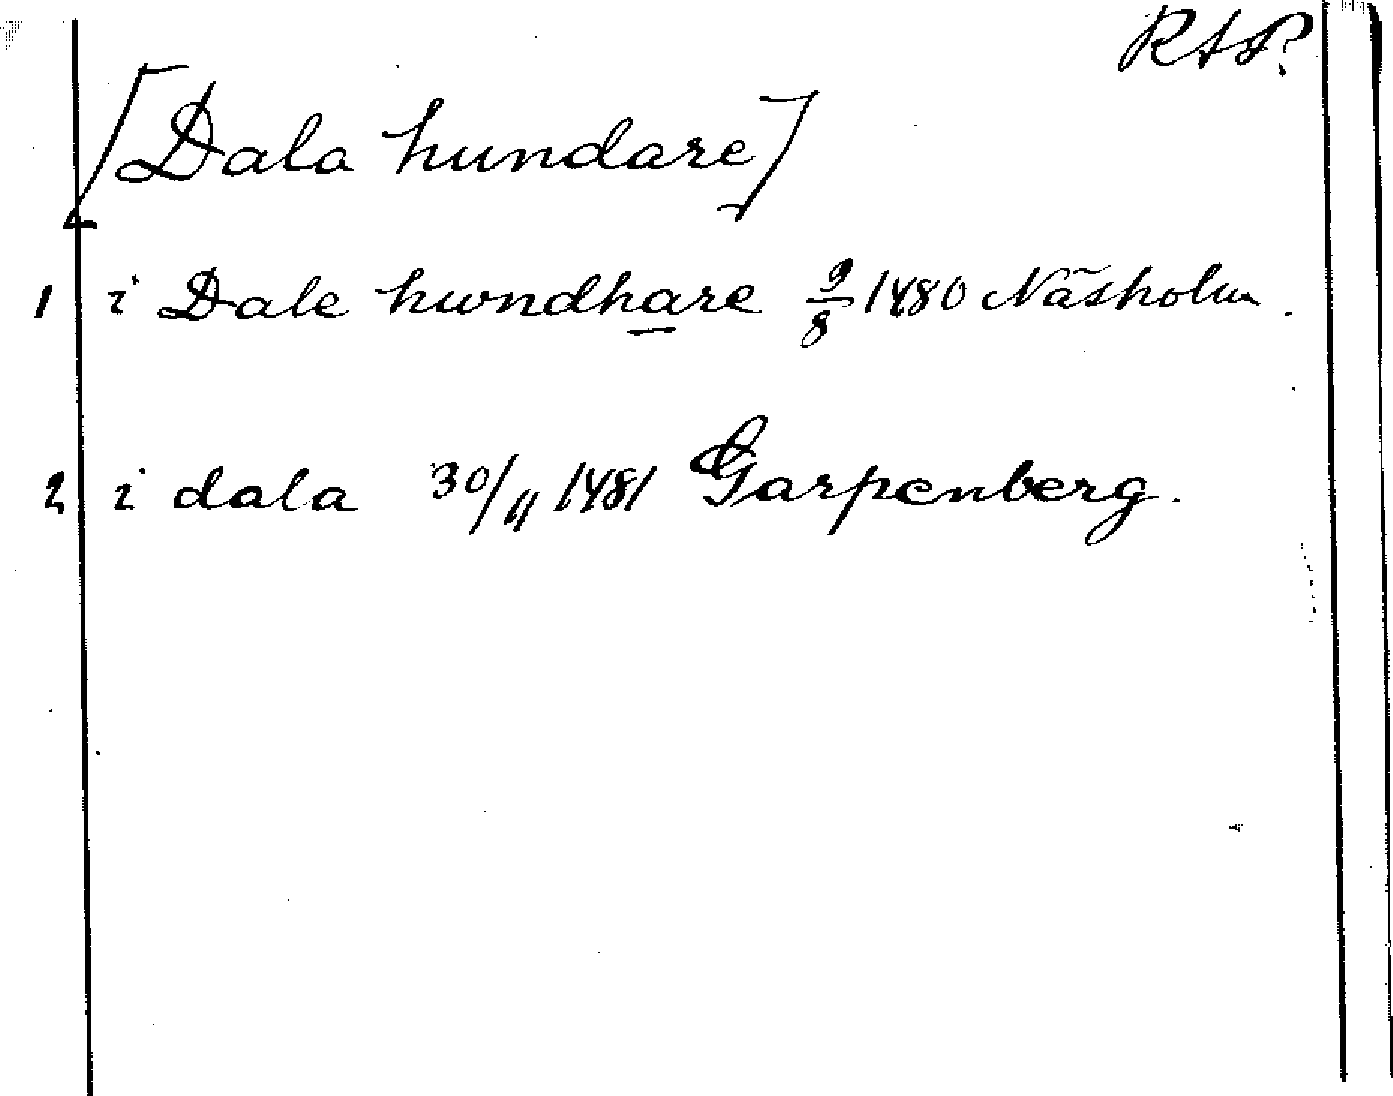 RAP.
[Dala hundare]
1 i Dale hwndhare 9/8 1480 Näsholm.
2 i dala 30/11 1481 Garpenberg.